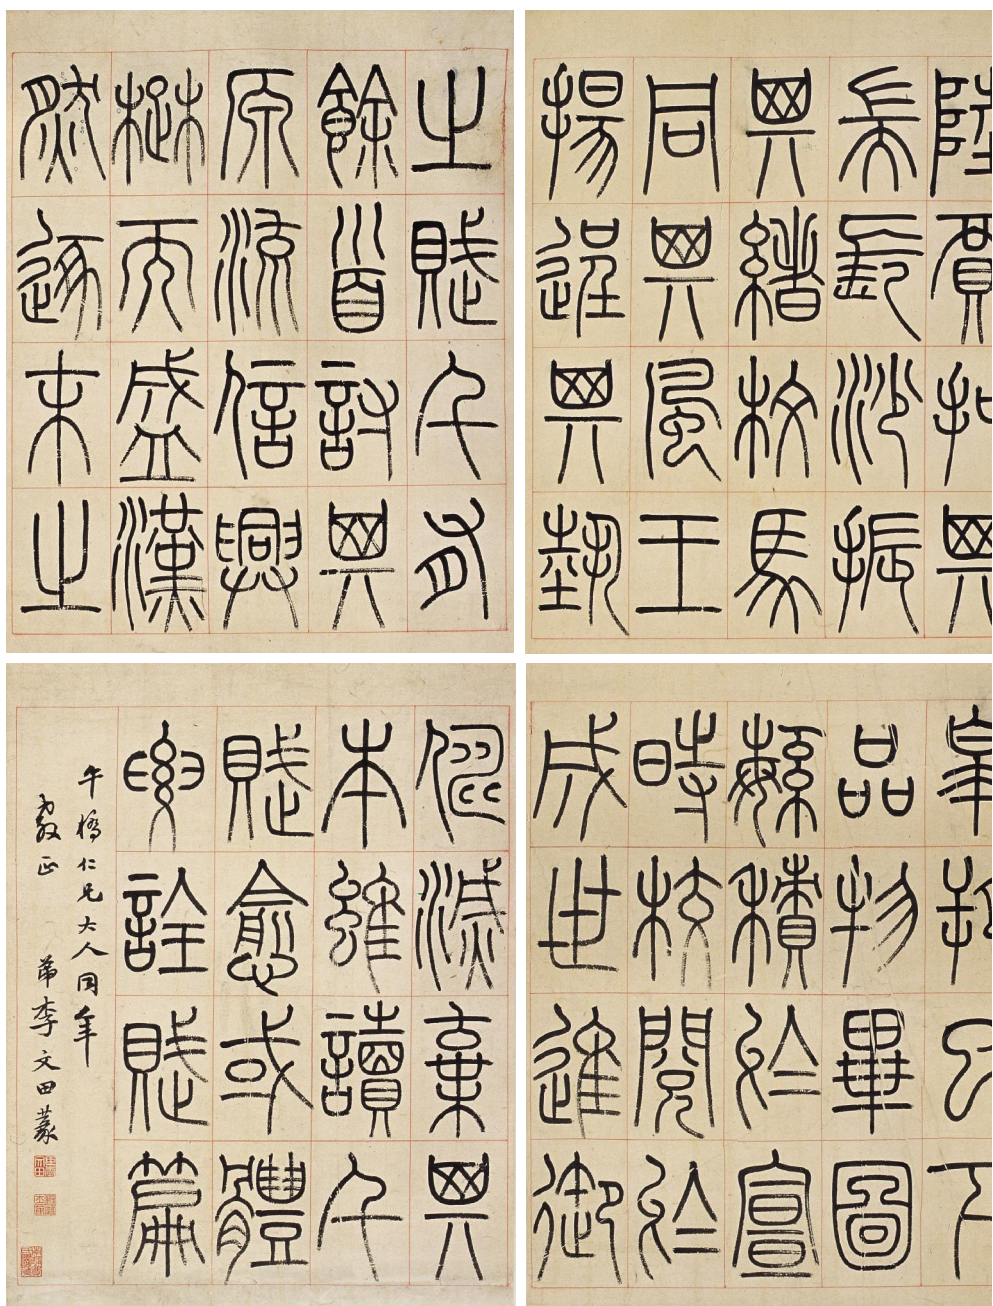 陸賈扣其
沙振
其緒枚馬
同其風王
揚逞其埶
皋朔已下
品物畢圖
繁積於宣
時校閱於
成世進御
之賦千有
餘首討其
原流信興
楚而盛漢
然逐末之
儔滅棄其
本雖讀千
賦愈或體
要詮賦篇
午橋仁兄大人同年
教正 弟李文田篆